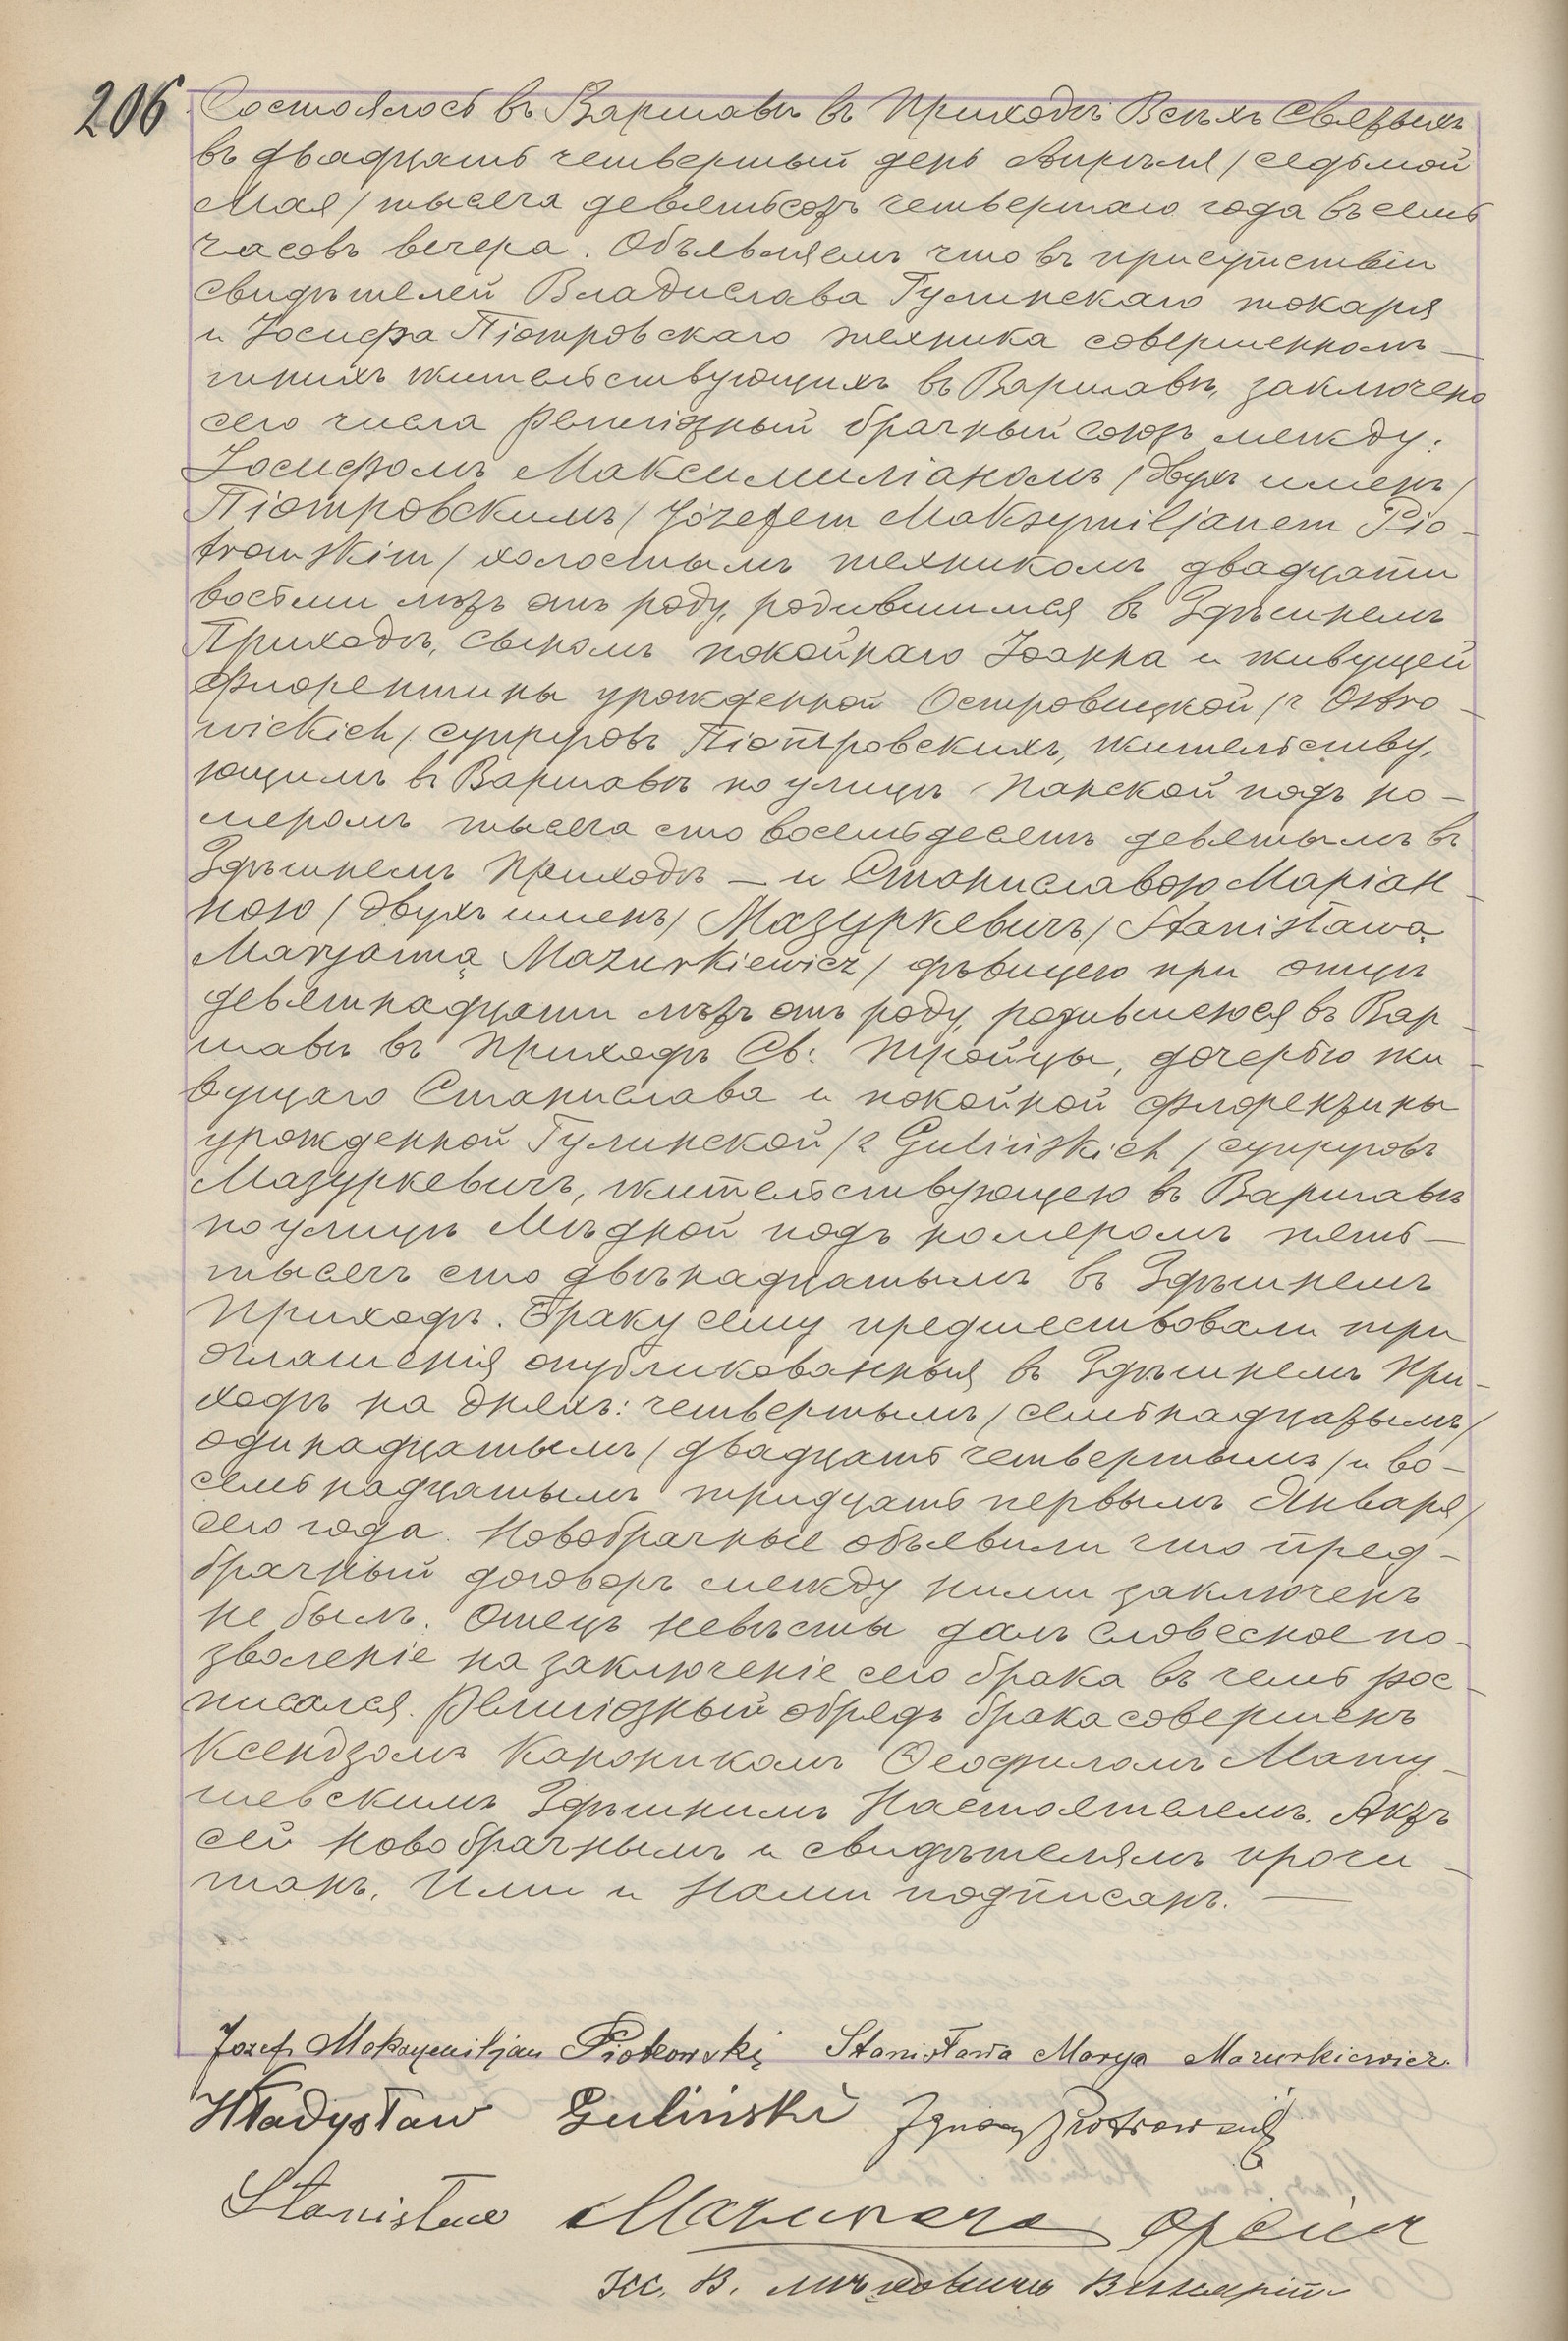 206
Состоялось въ Варшавѣ въ Приходѣ Всѣхъ Святыхъ
въ двадцать четвертый день Апрѣля / седьмой
Мая / тысяча девятьсотъ четвертаго года въ семь
часовъ вечера. Объявляемъ что въ присутствіи
свидѣтелей Владислава Гулинскаго токаря
и Іосифа Піотровскаго техника совершеннолѣ-
тнихъ жительствующихъ въ Варшавѣ, заключено
сего числа религіозный брачный союзъ между:
Іосифомъ Максимиліаномъ / двухъ именъ /
Піотровскимъ / Józefem Maksymiljanem Pio-
trowskim / холостымъ техникомъ двадцати
восьми лѣтъ отъ роду, родившимся въ Здѣшнемъ
Приходѣ, сыномъ покойнаго Іоанна и живущей
Флорентины урожденной Островицкой / z Ostro-
wickich / супруговъ Піотровскихъ, жительству-
ющимъ въ Варшавѣ по улицѣ Панской подъ но-
меромъ тысяча сто восемьдесятъ девятымъ въ
Здѣшнемъ Приходѣ — и Станиславою Маріан-
ною / двухъ именъ / Мазуркевичъ / Stanisławą
Maryanną Mazurkiewicz / дѣвицею при отцѣ
девятнадцати лѣтъ отъ роду, родившеюся въ Вар-
шавѣ въ Приходѣ Св: Тройцы, дочерью жи-
вущаго Станислава и покойной Флорентины
урожденной Гулинской / z Gulińskich / супруговъ
Мазуркевичъ, жительствующею въ Варшавѣ
по улицѣ Мѣдной подъ номеромъ пять-
тысячъ сто двѣнадцатымъ въ Здѣшнемъ
Приходѣ. Браку сему предшествовали три
оглашенія опубликованныя въ Здѣшнемъ При-
ходѣ на дняхъ: четвертымъ / семьнадцатымъ /
одинадцатымъ / двадцать четвертымъ / и во-
семьнадцатымъ тридцать первымъ Января /
сего года. Новобрачные объявили что пред-
брачный договоръ между ними заключенъ
не былъ. Отецъ невѣсты далъ словесное по-
зволеніе на заключеніе сего брака въ чемъ рос-
писался. Религіозный обрядъ брака совершенъ
Ксендзомъ Каноникомъ Ѳеофиломъ Мату-
шевскимъ Здѣшнимъ Настоятелемъ. Актъ
сей новобрачнымъ и свидѣтелямъ прочи-
танъ, Ими и Нами подписанъ. —
Jozef Maksymiljan Piotrowski Stanisława Marya Mazurkiewicz.
Władysław Guliński Piotrowski
Stanisław ojciec
Кс. В. Викарій